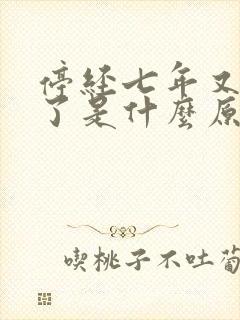 停经七年又
了是什麼原
喫桃子不吐葡